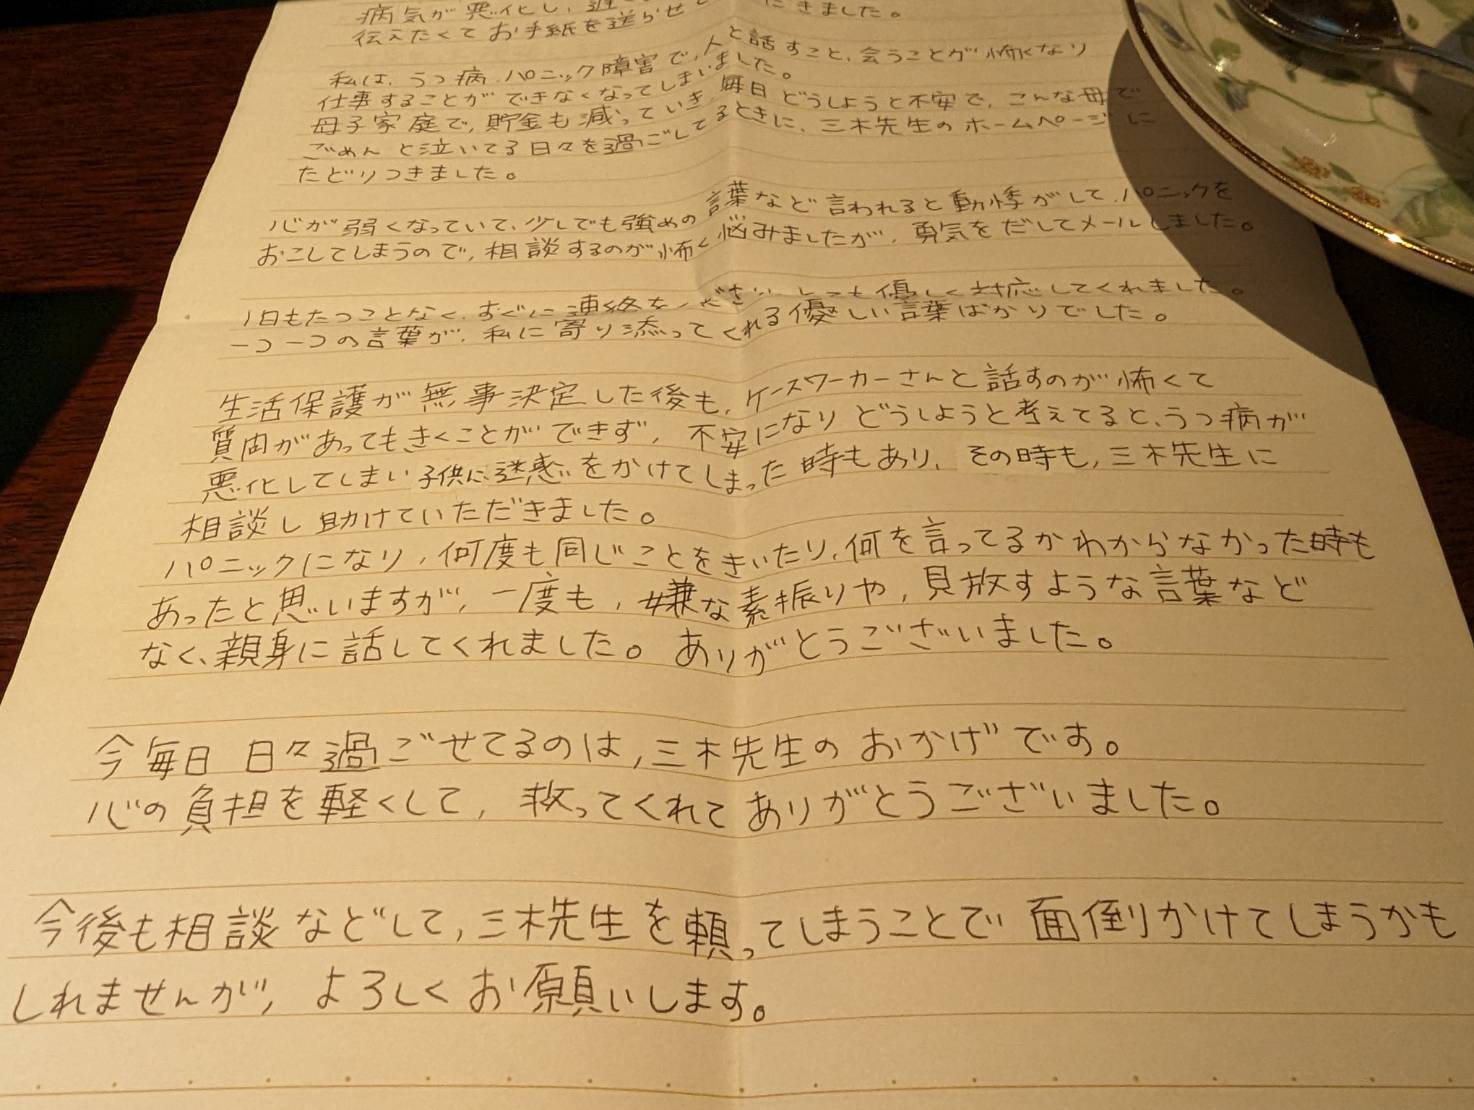 病気が悪化し、遅
伝えたくてお手紙を送らせて にきました。
私は、うつ病、パニック障害で、人と話すこと、会うことが怖くなり
仕事することができなくなってしまいました。
母子家庭で、貯金も減っていき、毎日どうしようと不安で、こんな母で
ごめんと泣いてる日々を過ごしてるときに、三木先生のホームページに
たどりつきました。
心が弱くなっていて、少しでも強めの言葉など言われると動悸がして、パニックを
おこしてしまうので、相談するのが怖く悩みましたが、勇気をだしてメールしました。
1日もたつことなく、すぐに連絡を とても優しく対応してくれました。
一つ一つの言葉が、私に寄り添ってくれる優しい言葉ばかりでした。
生活保護が無事決定した後も、ケースワーカーさんと話すのが怖くて
質問があってもきくことができず、不安になりどうしようと考えてると、うつ病が
悪化してしまい子供に迷惑をかけてしまった時もあり、その時も、三木先生に
相談し助けていただきました。
パニックになり、何度も同じことをきいたり、何を言ってるかわからなかった時も
あったと思いますが、一度も、嫌な素振りや、見放すような言葉など
なく、親身に話してくれました。ありがとうございました。
今毎日 日々過ごせてるのは、三木先生のおかげです。
心の負担を軽くして、救ってくれてありがとうございました。
今後も相談などして、三木先生を頼ってしまうことで面倒かけてしまうかも
しれませんが、よろしくお願いします。